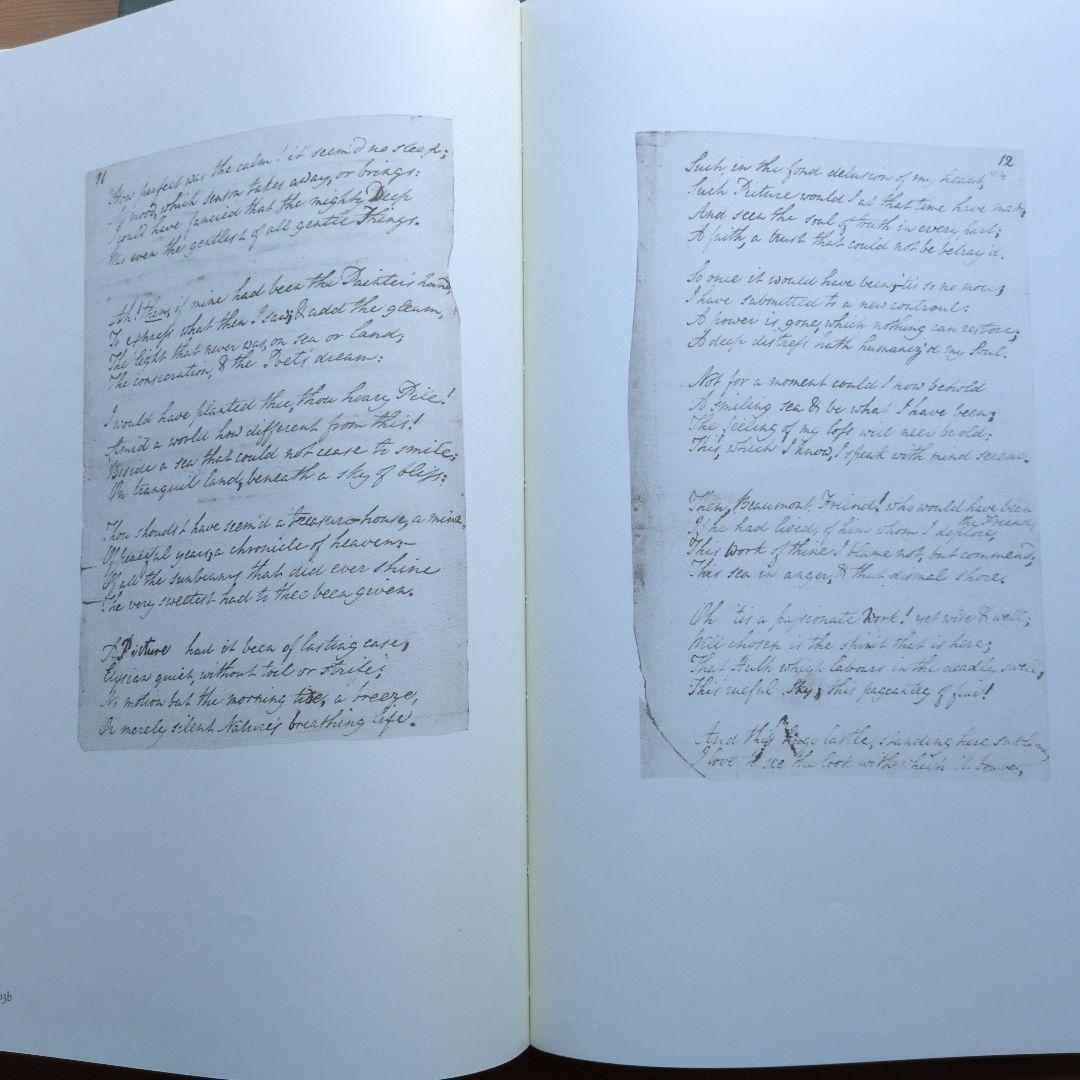 11
How perfect was the calm! it seem'd no sleep;
No mood, which season takes away, or brings:
I could have fancied that the mighty Deep
Was even the gentlest of all gentle Things.
Ah! then, if mine had been the Painter's hand,
To express what then I saw; & add the gleam,
The light that never was, on sea or land,
The consecration, & the Poet's dream:
I would have planted thee, thou hoary Pile!
Amid a world how different from this!
Beside a sea that could not cease to smile;
On tranquil land, beneath a sky of bliss:
Thou shouldst have seem'd a treasure-house, a mine
Of peaceful years, a chronicle of heaven;—
Of all the sunbeams that did ever shine
The very sweetest had to thee been given.
A Picture had it been of lasting ease,
Elysian quiet, without toil or strife;
No motion but the moving tide, a breeze,
Or merely silent Nature's breathing life.
03b
12
Such, in the fond delusion of my heart,
Such Picture would I at that time have made;
And seen the soul of truth in every part;
A faith, a trust that could not be betray'd.
So once it would have been; 'tis so no more;
I have submitted to a new controul:
A power is gone, which nothing can restore;
A deep distress hath humaniz'd my Soul.
Not for a moment could I now behold
A smiling sea & be what I have been;
The feeling of my loss will ne'er be old;
This, which I know, I speak with mind serene.
Then, Beaumont, Friend! who would have been
the Friend,
If he had lived, of him whom I deplore,
This Work of thine I blame not, but commend;
This sea in anger, & that dismal shore.
Oh 'tis a passionate Work! yet wise & well;
Well chosen is the spirit that is here;
That Hulk which labours in the deadly swell,
This rueful Sky, this pageantry of fear!
And this huge Castle, standing here sublime,
I love to see the look with which it braves,